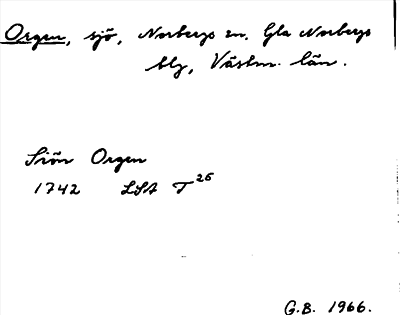 Orgen, sjö, Norbergs sn. Gla Norbergs
blg, Västm. län.
Siön Orgen
1742 LSA T26
G.B. 1966.